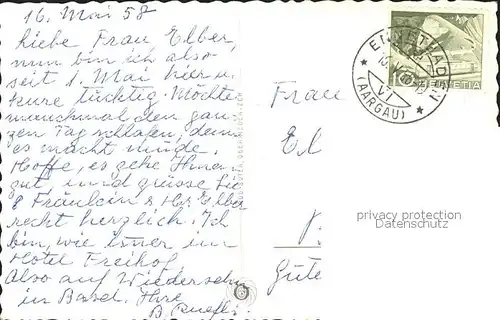 16. Mai 58
Liebe Frau Elber,
nun bin ich also
seit 1. Mai hier u.
kure tüchtig. Möchte
manchmal den gan-
zen Tag schlafen, denn
es macht müde.
Hoffe, es gehe Ihnen
gut, und grüsse Sie
& Fräulein & Hr. Elber
recht herzlich. Ich
bin, wie immer im
Hotel Freihof.
Also auf Wiedersehn
in Basel. Ihre
B.
Frau
El
Güte
ENNETBADEN
(AARGAU)
10 HELVETIA
privacy protection
Datenschutz